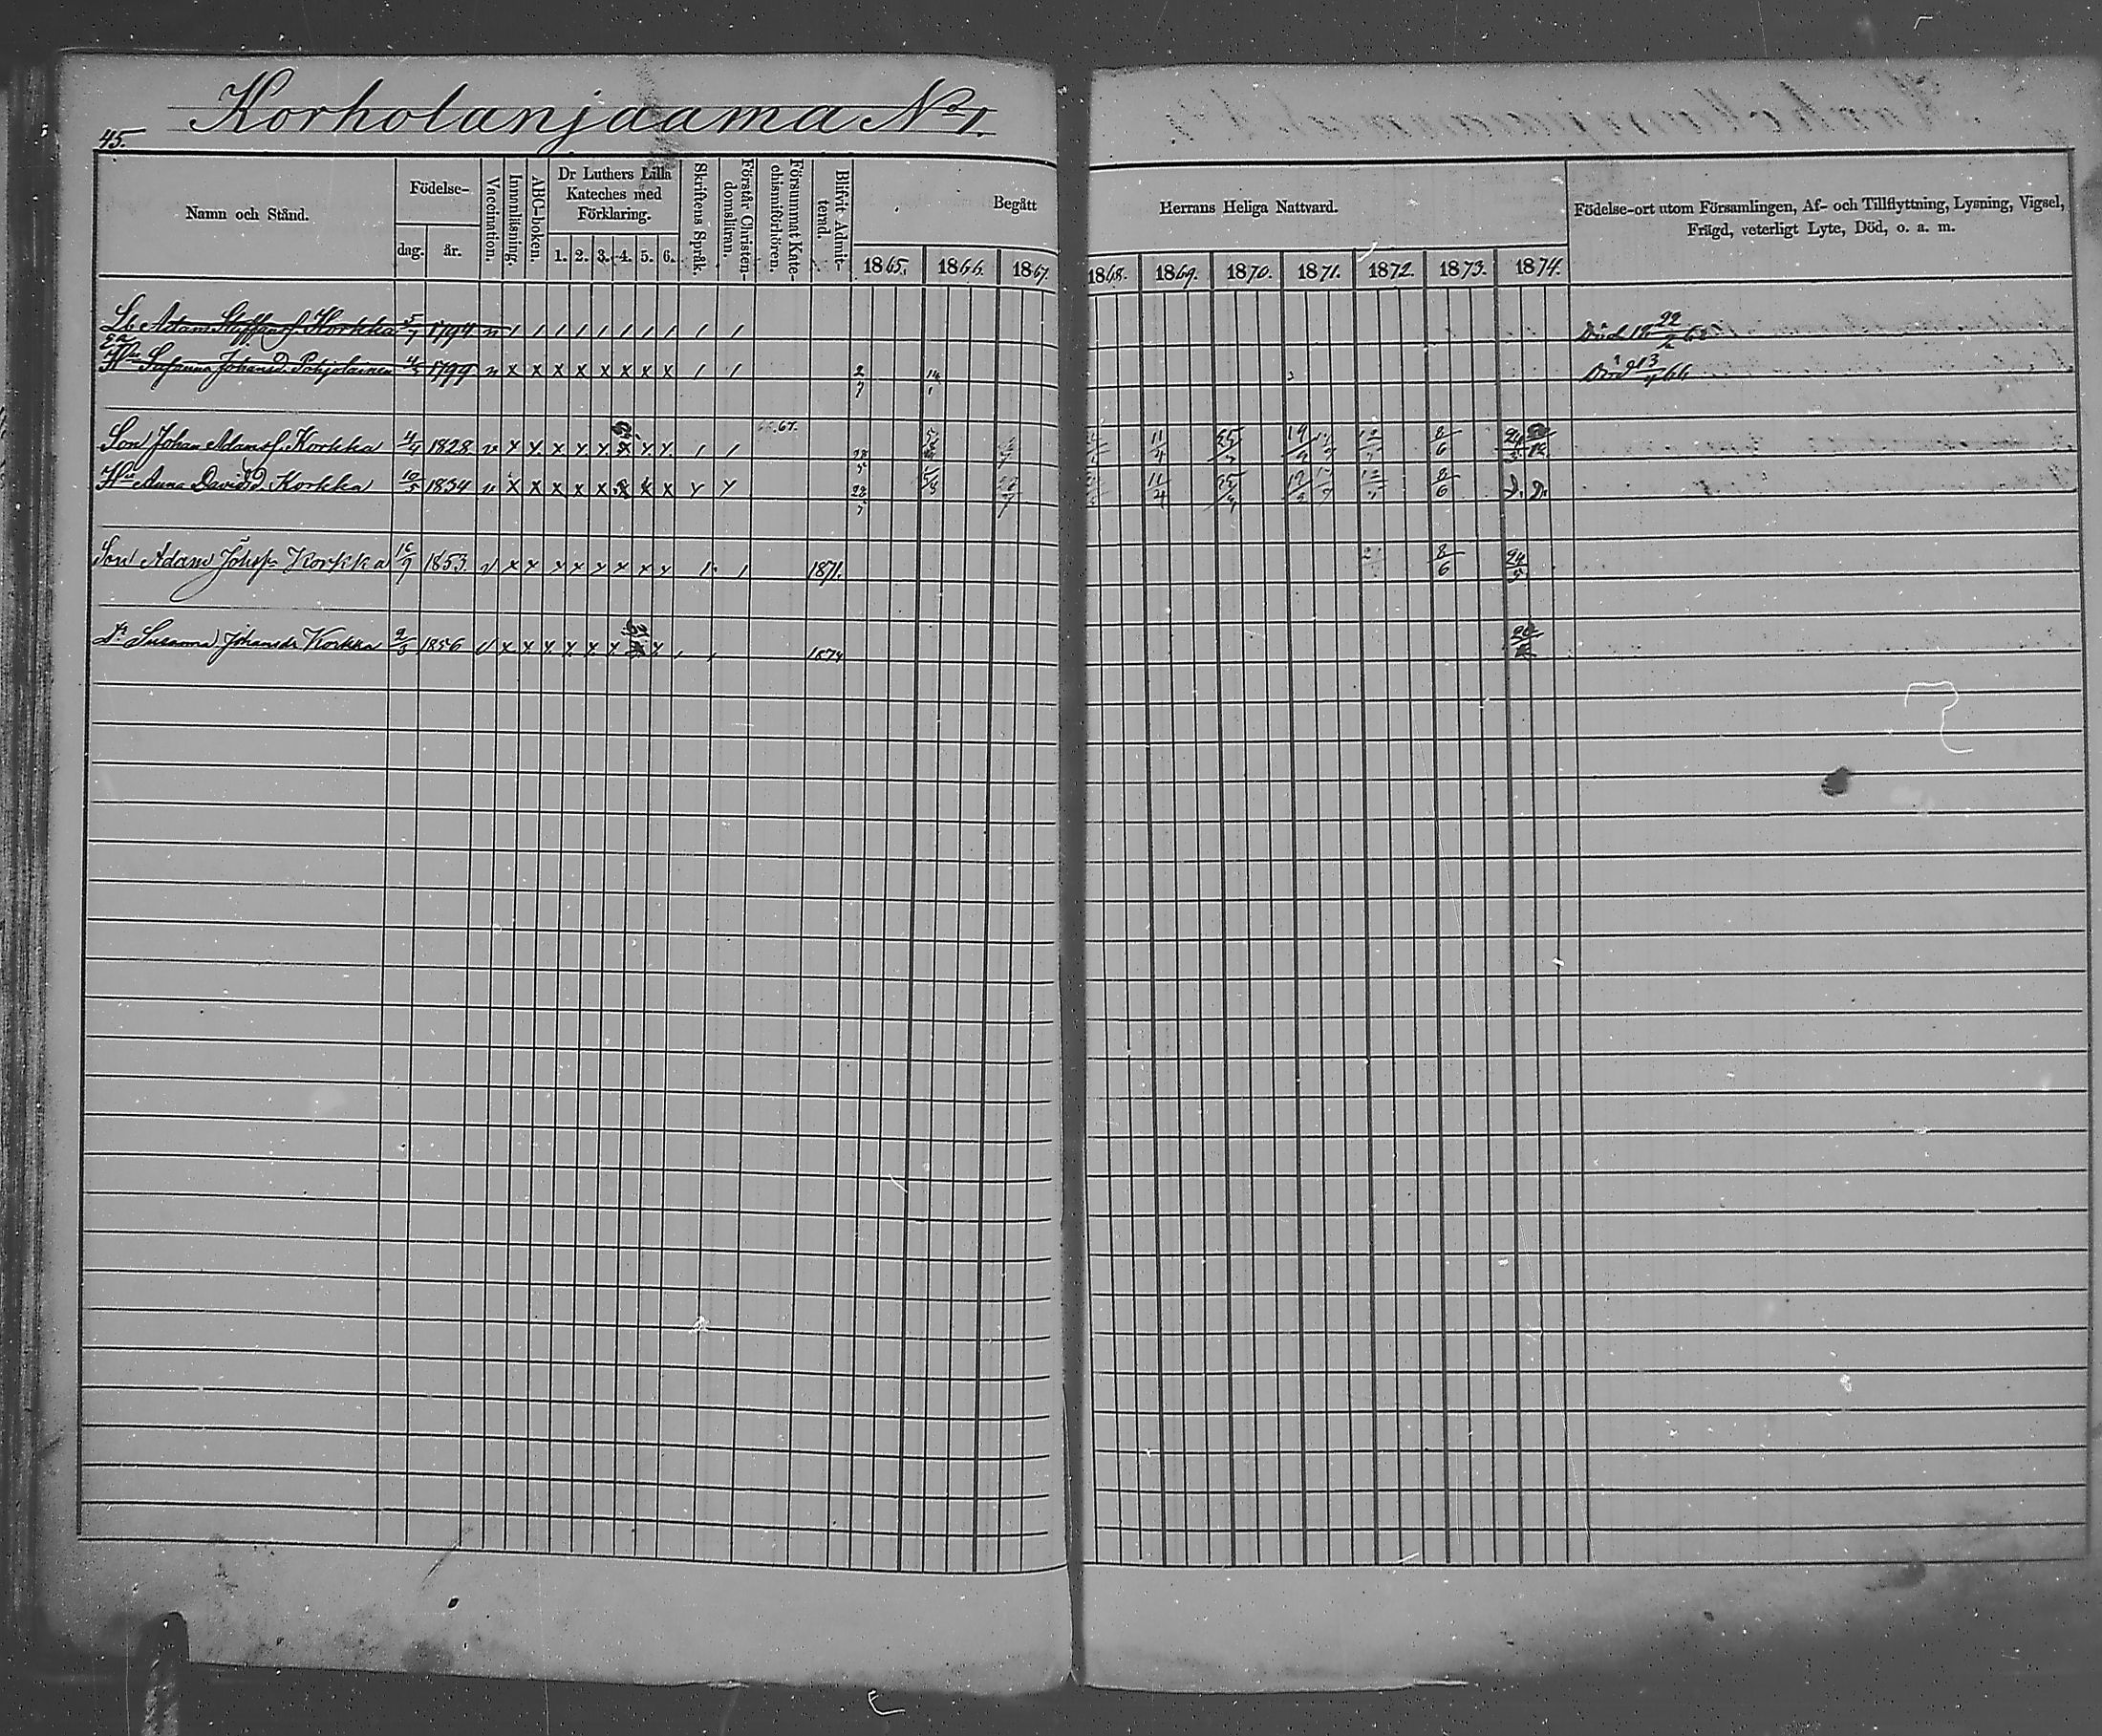 Korholanjaama No 1.
45.
Namn och Stånd.
Födelse-
dag.
år.
Vaccination.
Innanläsning.
ABC-boken.
Dr Luthers Lilla
Kateches med
Förklaring.
1. 2. 3. 4. 5. 6.
Skriftens Språk.
Förstår Christen-
domsläran.
Försummat Kate-
chismiförhören.
Blifvit Admit-
terad.
Begått
Herrans Heliga Nattvard.
1865. 1866. 1867. 1868. 1869. 1870. 1871. 1872. 1873. 1874.
Födelse-ort utom Församlingen, Af- och Tillflyttning, Lysning, Vigsel,
Frägd, veterligt Lyte, Död, o. a. m.
Adam Staffansf. Korkka 5/7 1794 v 1 1 1 1 1 1 1 1 1 1 Död
Hu Susanna Johansd. Pohjolainen 1799 v x x x x x x x x 1 1 2/7 14/1 Död 66
Son Johan Adamsf. Korkka 1828 v x x x x x x x x 1 1 67. 28/5 11/4 8/6 24/5
Hu Anna Davidsd. Korkka 10/5 1834 v x x x x x x x x y y 28/5 11/4 8/6
Son Adam Johsf. Korkka 16/9 1853. v x x x x x x x x 1 1 1871. 8/6 24/5
Dr Susanna Johansdr Korkka 1856 v x x x x x x x 1874